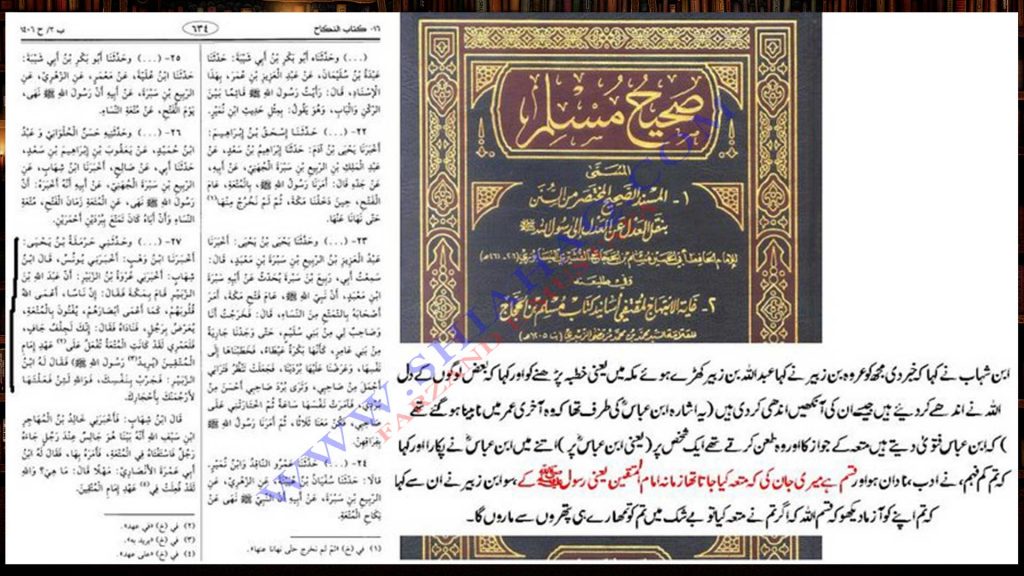 ١٦- كتاب النكاح
٦٣٤
ب ٣/ ح ١٤٠٦
(...) وحَدَّثَنَاه أَبُو بَكْرِ بْنُ أَبِي شَيْبَةَ: حَدَّثَنَا
عَبْدَةُ بْنُ سُلَيْمَانَ، عَنْ عَبْدِ الْعَزِيزِ بْنِ عُمَرَ، بِهَذَا
الْإِسْنَادِ، قَالَ: رَأَيْتُ رَسُولَ اللهِ ﷺ قَائِمًا بَيْنَ
الرُّكْنِ وَالْبَابِ، وَهُوَ يَقُولُ: بِمِثْلِ حَدِيثِ ابْنِ نُمَيْرٍ.
٢٢- (...) حَدَّثَنَا إِسْحٰقُ بْنُ إِبْرَاهِيمَ:
أَخْبَرَنَا يَحْيَى بْنُ آدَمَ: حَدَّثَنَا إِبْرَاهِيمُ بْنُ سَعْدٍ، عَنْ
عَبْدِ الْمَلِكِ بْنِ الرَّبِيعِ بْنِ سَبْرَةَ الْجُهَنِيِّ، عَنْ أَبِيهِ،
عَنْ جَدِّهِ قَالَ: أَمَرَنَا رَسُولُ اللهِ ﷺ بِالْمُتْعَةِ، عَامَ
الْفَتْحِ، حِينَ دَخَلْنَا مَكَّةَ، ثُمَّ لَمْ نَخْرُجْ مِنْهَا(١)
حَتَّى نَهَانَا عَنْهَا.
٢٣- (...) وحَدَّثَنَا يَحْيَى بْنُ يَحْيَى: أَخْبَرَنَا
عَبْدُ الْعَزِيزِ بْنُ الرَّبِيعِ بْنِ سَبْرَةَ بْنِ مَعْبَدٍ، قَالَ:
سَمِعْتُ أَبِي، رَبِيعَ بْنَ سَبْرَةَ يُحَدِّثُ عَنْ أَبِيهِ سَبْرَةَ
ابْنِ مَعْبَدٍ: أَنَّ نَبِيَّ اللهِ ﷺ، عَامَ فَتْحِ مَكَّةَ، أَمَرَ
أَصْحَابَهُ بِالتَّمَتُّعِ مِنَ النِّسَاءِ، قَالَ: فَخَرَجْتُ أَنَا
وَصَاحِبٌ لِي مِنْ بَنِي سُلَيْمٍ، حَتَّى وَجَدْنَا جَارِيَةً
مِنْ بَنِي عَامِرٍ، كَأَنَّهَا بَكْرَةٌ عَيْطَاءُ، فَخَطَبْنَاهَا إِلَى
نَفْسِهَا، وَعَرَضْنَا عَلَيْهَا بُرْدَيْنَا، فَجَعَلَتْ تَنْظُرُ فَتَرَانِي
أَجْمَلَ مِنْ صَاحِبِي، وَتَرَى بُرْدَ صَاحِبِي أَحْسَنَ مِنْ
بُرْدِي، فَآمَرَتْ نَفْسَهَا سَاعَةً ثُمَّ اخْتَارَتْنِي عَلَى
صَاحِبِي، فَكُنَّ مَعَنَا ثَلَاثًا، ثُمَّ أَمَرَنَا رَسُولُ اللهِ ﷺ
بِفِرَاقِهِنَّ.
٢٤- (...) حَدَّثَنَا عَمْرٌو النَّاقِدُ وَابْنُ نُمَيْرٍ.
قَالَا: حَدَّثَنَا سُفْيَانُ بْنُ عُيَيْنَةَ عَنِ الزُّهْرِيِّ، عَنِ
الرَّبِيعِ بْنِ سَبْرَةَ، عَنْ أَبِيهِ أَنَّ النَّبِيَّ ﷺ نَهَى عَنْ
نِكَاحِ الْمُتْعَةِ.
(١) في (خ) «ثم لم نخرج حتى نهانا عنها».
٢٥- (...) وحَدَّثَنَا أَبُو بَكْرِ بْنُ أَبِي شَيْبَةَ:
حَدَّثَنَا ابْنُ عُلَيَّةَ، عَنْ مَعْمَرٍ، عَنِ الزُّهْرِيِّ، عَنِ
الرَّبِيعِ بْنِ سَبْرَةَ، عَنْ أَبِيهِ أَنَّ رَسُولَ اللهِ ﷺ نَهَى،
يَوْمَ الْفَتْحِ، عَنْ مُتْعَةِ النِّسَاءِ.
٢٦- (...) وحَدَّثَنِيهِ حَسَنٌ الْحُلْوَانِيُّ وَعَبْدُ
ابْنُ حُمَيْدٍ، عَنْ يَعْقُوبَ بْنِ إِبْرَاهِيمَ بْنِ سَعْدٍ،
حَدَّثَنَا أَبِي، عَنْ صَالِحٍ، أَخْبَرَنَا ابْنُ شِهَابٍ، عَنِ
الرَّبِيعِ بْنِ سَبْرَةَ الْجُهَنِيِّ، عَنْ أَبِيهِ أَنَّهُ أَخْبَرَهُ: أَنَّ
رَسُولَ اللهِ ﷺ نَهَى، عَنِ الْمُتْعَةِ زَمَانَ الْفَتْحِ، مُتْعَةِ
النِّسَاءِ وَأَنَّ أَبَاهُ كَانَ تَمَتَّعَ بِبُرْدَيْنِ أَحْمَرَيْنِ.
٢٧- (...) وحَدَّثَنِي حَرْمَلَةُ بْنُ يَحْيَى:
أَخْبَرَنَا ابْنُ وَهْبٍ: أَخْبَرَنِي يُونُسُ، قَالَ ابْنُ
شِهَابٍ: أَخْبَرَنِي عُرْوَةُ بْنُ الزُّبَيْرِ: أَنَّ عَبْدَ اللهِ بْنَ
الزُّبَيْرِ قَامَ بِمَكَّةَ فَقَالَ: إِنَّ نَاسًا، أَعْمَى اللهُ
قُلُوبَهُمْ، كَمَا أَعْمَى أَبْصَارَهُمْ، يُفْتُونَ بِالْمُتْعَةِ،
يُعَرِّضُ بِرَجُلٍ، فَنَادَاهُ فَقَالَ: إِنَّكَ لَجِلْفٌ جَافٍ،
فَلَعَمْرِي لَقَدْ كَانَتِ الْمُتْعَةُ تُفْعَلُ عَلَى(٢) عَهْدِ إِمَامِ
الْمُتَّقِينَ (يُرِيدُ(٣) رَسُولَ اللهِ ﷺ) فَقَالَ لَهُ ابْنُ
الزُّبَيْرِ: فَجَرِّبْ بِنَفْسِكَ، فَوَاللهِ لَئِنْ فَعَلْتَهَا
لَأَرْجُمَنَّكَ بِأَحْجَارِكَ.
قَالَ ابْنُ شِهَابٍ: فَأَخْبَرَنِي خَالِدُ بْنُ الْمُهَاجِرِ
ابْنِ سَيْفِ اللهِ أَنَّهُ بَيْنَا هُوَ جَالِسٌ عِنْدَ رَجُلٍ جَاءَهُ
رَجُلٌ فَاسْتَفْتَاهُ فِي الْمُتْعَةِ، فَأَمَرَهُ بِهَا، فَقَالَ لَهُ ابْنُ
أَبِي عَمْرَةَ الْأَنْصَارِيُّ: مَهْلًا قَالَ: مَا هِيَ؟ وَاللهِ
لَقَدْ فُعِلَتْ فِي(٤) عَهْدِ إِمَامِ الْمُتَّقِينَ.
(٢) في (خ) «في عهد».
(٣) في (خ) «يريد به».
(٤) في (خ) «على عهد».
صَحِيحُ مُسْلِم
المُسَمَّى
١- المُسْنَدُ الصَّحِيحُ المُخْتَصَرُ مِنَ السُّنَنِ
بِنَقْلِ العَدْلِ عَنِ العَدْلِ إِلَى رَسُولِ اللهِ ﷺ
وفي طليعته
٢- غاية الابتهاج لمقتفي أسانيد كتاب مسلم بن الحجاج
ابن شہاب نے کہا کہ خبر دی مجھ کو عروہ بن زبیر نے کہا عبداللہ بن زبیر کھڑے ہوئے مکہ میں یعنی خطبہ پڑھنے کو اور کہا کہ بعض لوگوں کے دل
اللہ نے اندھے کر دیئے ہیں جیسے ان کی آنکھیں اندھی کر دی ہیں (یہ اشارہ ابن عباسؓ کی طرف تھا کہ وہ آخری عمر میں نابینا ہو گئے تھے
) کہ ابن عباس فتویٰ دیتے ہیں متعہ کے جواز کا اور وہ طعن کرتے تھے ایک شخص پر (یعنی ابن عباسؓ پر) اتنے میں ابن عباسؓ نے پکارا اور کہا
کہ تم کم فہم، بے ادب، نادان ہو اور قسم ہے میری جان کی کہ متعہ کیا جاتا تھا زمانہ امام المتقین یعنی رسول ﷺ کے، سو ابن زبیر نے ان سے کہا
کہ تم اپنے کو آزما دیکھو کہ قسم اللہ کہ اگر تم نے متعہ کیا تو بے شک میں تم کو تمہارے ہی پتھروں سے ماروں گا۔